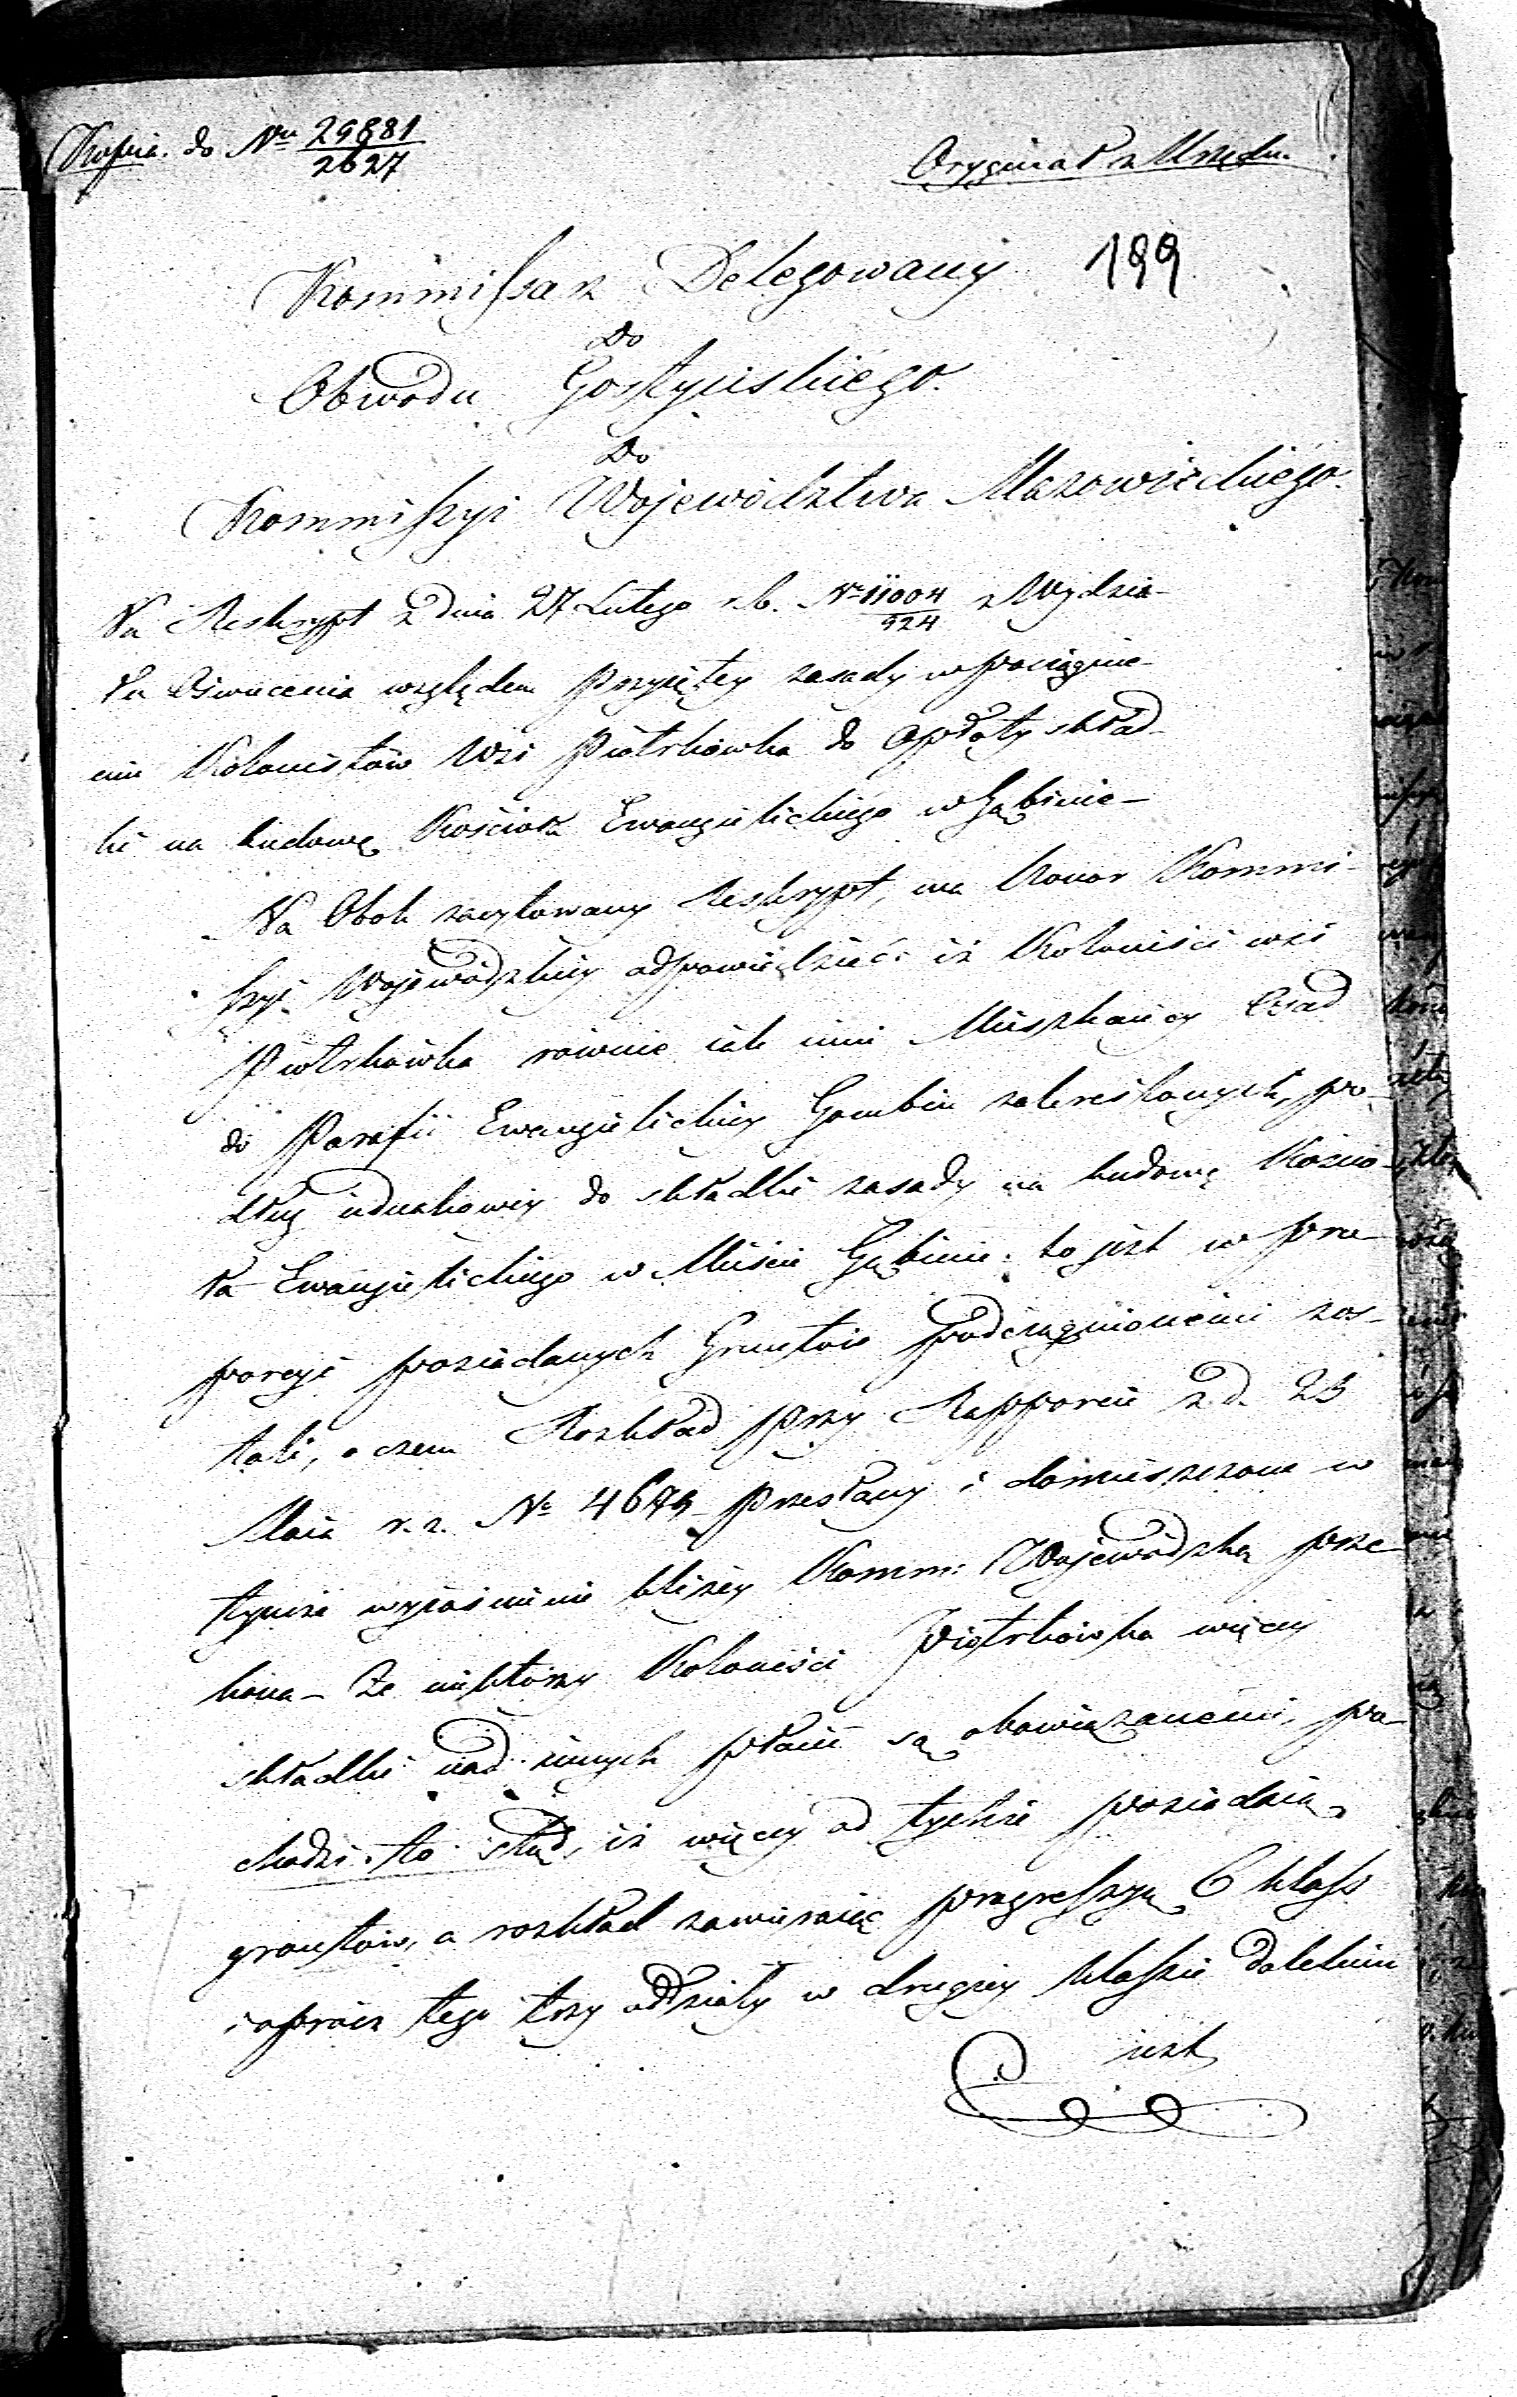 Kopia do Nru 29881/2627
Oryginał z Urzędu.
199
Kommissarz Delegowany
do
Obwodu Gostyńskiego.
Do
Kommissyi Województwa Mazowieckiego.
Na Reskrypt z dnia 27 Lutego r.b. Nr 11004/924 z Wydzia-
łu Oświecenia względem przyiętey zasady w pociągnie-
niu Kolonistów Wsi Piotrkówka do opłaty skład-
ki na budowę Kościoła Ewangelickiego w Gąbinie -
Na Obok zacytowany Reskrypt, ma honor Kommi-
ssyi Wojewódzkiey odpowiedzieć: iż Koloniści wsi
Piotrkówka równie iak inni Mieszkańcy Osad
do Parafii Ewangielickiey Gombin zakreślonych, po-
dług iednakowey do składki zasady na budowę Kościo-
ła Ewangielickiego w Mieście Gąbinie: to jest w pro-
porcyi posiadanych Gruntów podciągnionemi zos-
tali, o czem Rozkład przy Rapporcie z d. 23
Maia r.z. Nr 4679 przesłany i domieszczone w
tymże wyiaśnienie bliżey Komm: Wojewódzką prze-
kona - Że niektórzy Koloniści Piotrkówka więcey
składki nad innych płacić są obowiązanemi, po-
chodzi to stąd, iż więcey od tychże posiadaią
gruntów, a rozkład zawieraiąc progressyą 6 klass
i oprócz tego trzy oddziały w drugiey klassie
iest